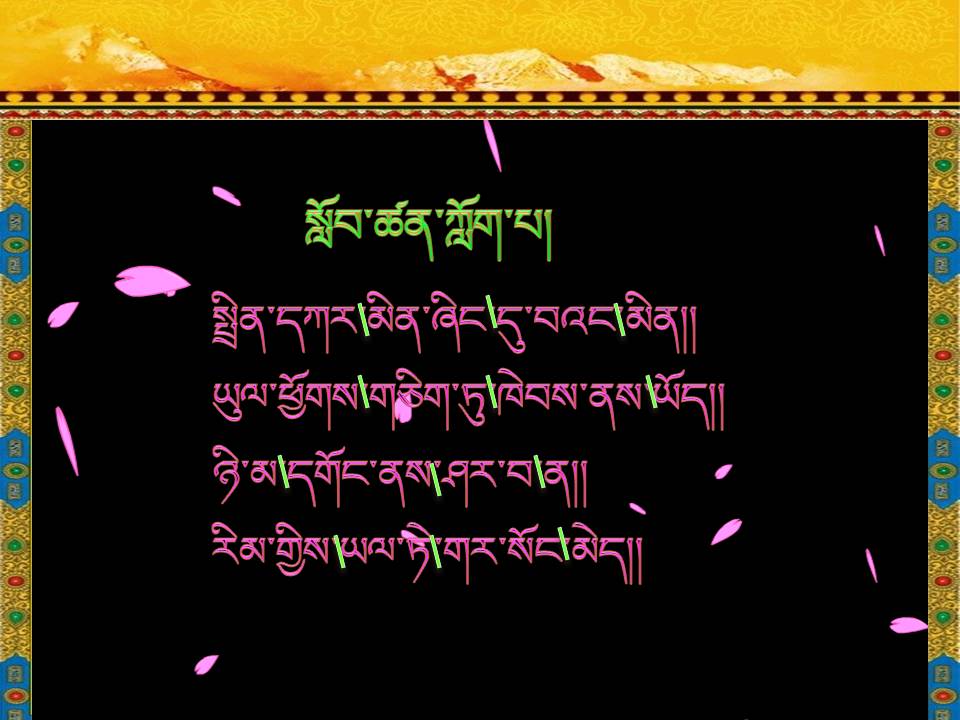 སློབ་ཚན་ཀློག་པ།
སྤྲིན་དཀར\མིན་ཞིང\དུ་བའང\མིན།།
ཡུལ་ཕྱོགས\གཅིག་ཏུ\ཁེབས་ནས\ཡོད།།
ཉི་མ\དགོང་ནས\ཤར་བ\ན།།
རིམ་གྱིས\ཡལ་ཏེ\གར་སོང\མེད།།